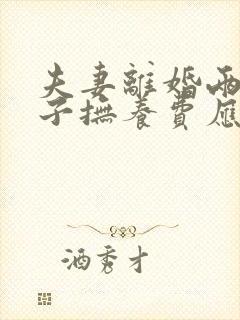 夫妻離婚兩
子撫養費應
酒秀才